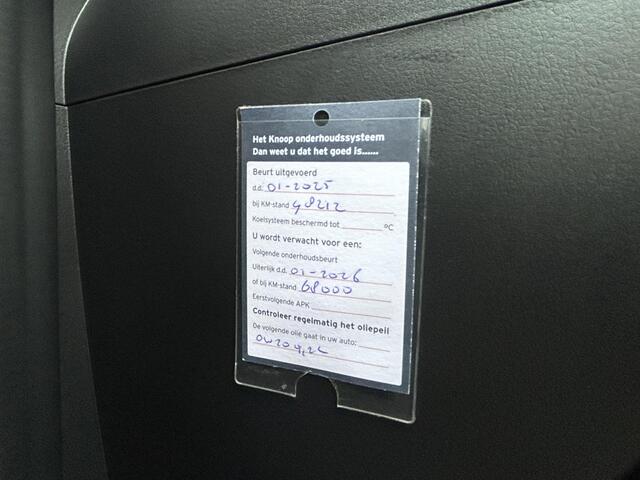 Het Knoop onderhoudssysteem
Dan weet u dat het goed is......
Beurt uitgevoerd
d.d. 01-2025
bij KM-stand 48212
Koelsysteem beschermd tot ºC
U wordt verwacht voor een:
Volgende onderhoudsbeurt
Uiterlijk d.d. 01-2026
of bij KM-stand 68000
Eerstvolgende APK
Controleer regelmatig het oliepeil
De volgende olie gaat in uw auto:
0W20 4,2L